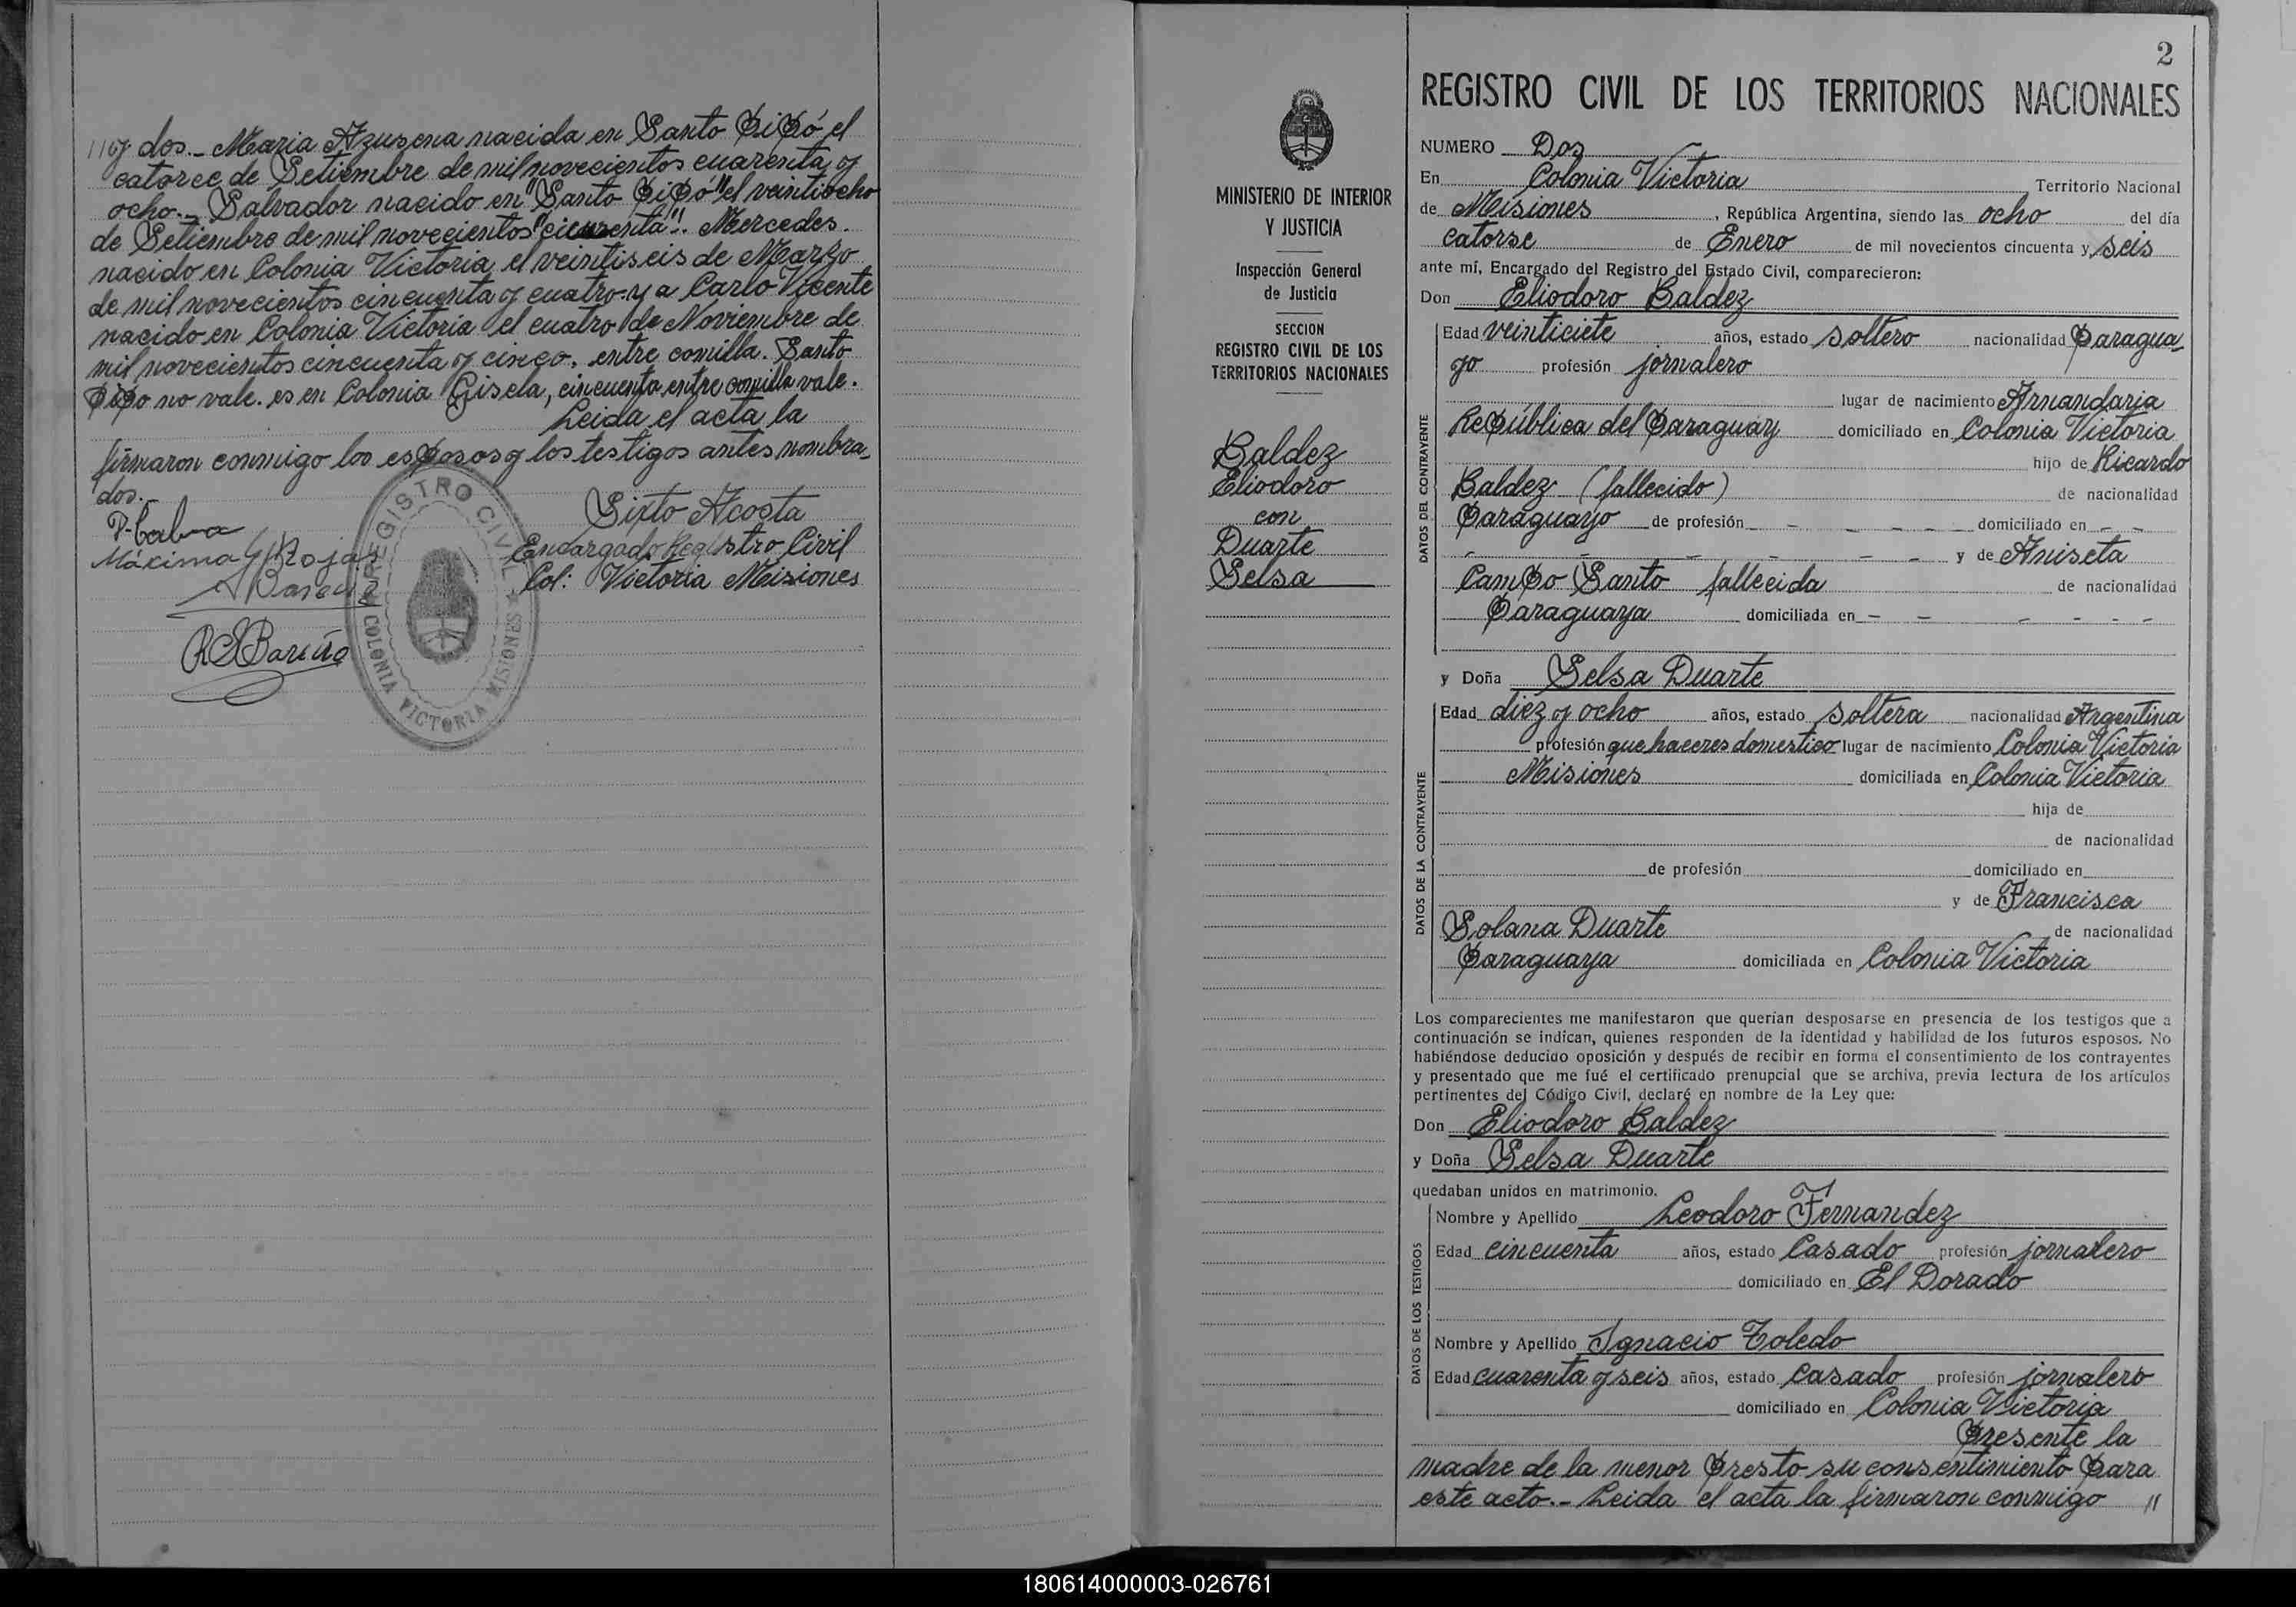 //y dos.- Maria Azusena nacida en Santo Pipó el
catorce de Setiembre de mil novecientos cuarenta y
ocho.- Salvador nacido en "Santo Pipó" el veintiocho
de Setiembre de mil novecientos "cicuenta". Mercedes.
nacido en Colonia Victoria el veintiseis de Marzo
de mil novecientos cincuenta y cuatro. y a Carlo Vicente
nacido en Colonia Victoria el cuatro de Noviembre de
mil novecientos cincuenta y cinco. entre comilla. Santo
Pipo no vale. es en Colonia Gisela, cincuenta entre comilla vale.
Leida el acta la
firmaron conmigo los esposos y los testigos antes nombra-
dos.
Sixto Acosta
Máxima G Rojas
Encargado Registro Civil
Col: Victoria Misiones
REGISTRO CIVIL
COLONIA VICTORIA MISIONES
2
REGISTRO CIVIL DE LOS TERRITORIOS NACIONALES
MINISTERIO DE INTERIOR
Y JUSTICIA
Inspección General
de Justicia
SECCION
REGISTRO CIVIL DE LOS
TERRITORIOS NACIONALES
Baldez
Eliodoro
con
Duarte
Selsa
NUMERO Dos
En Colonia Victoria Territorio Nacional
de Misiones, República Argentina, siendo las ocho del día
catorse de Enero de mil novecientos cincuenta y seis
ante mí, Encargado del Registro del Estado Civil, comparecieron:
Don Eliodoro Baldez
DATOS DEL CONTRAYENTE
Edad veinticiete años, estado soltero nacionalidad Paragua-
yo profesión jornalero
lugar de nacimiento Arnandaria
República del Paraguay domiciliado en Colonia Victoria
hijo de Ricardo
Baldez (fallecido) de nacionalidad
Paraguayo de profesión - - - - domiciliado en - -
- - - - - - - y de Aniseta
Campo Santo fallecida de nacionalidad
Paraguaya domiciliada en - - - - - -
y Doña Selsa Duarte
DATOS DE LA CONTRAYENTE
Edad diez y ocho años, estado soltera nacionalidad Argentina
profesión que haceres domestico lugar de nacimiento Colonia Victoria
Misiones domiciliada en Colonia Victoria
hija de
de nacionalidad
de profesión domiciliado en
y de Francisca
Solana Duarte de nacionalidad
Paraguaya domiciliada en Colonia Victoria
Los comparecientes me manifestaron que querían desposarse en presencia de los testigos que a
continuación se indican, quienes responden de la identidad y habilidad de los futuros esposos. No
habiéndose deducido oposición y después de recibir en forma el consentimiento de los contrayentes
y presentado que me fué el certificado prenupcial que se archiva, previa lectura de los artículos
pertinentes del Código Civil, declaré en nombre de la Ley que:
Don Eliodoro Baldez
y Doña Selsa Duarte
quedaban unidos en matrimonio.
DATOS DE LOS TESTIGOS
Nombre y Apellido Leodoro Fernandez
Edad cincuenta años, estado Casado profesión jornalero
domiciliado en El Dorado
Nombre y Apellido Ignacio Toledo
Edad cuarenta y seis años, estado Casado profesión jornalero
domiciliado en Colonia Victoria
Presente la
madre de la menor presto su consentimiento para
este acto.- Leida el acta la firmaron conmigo //
180614000003-026761